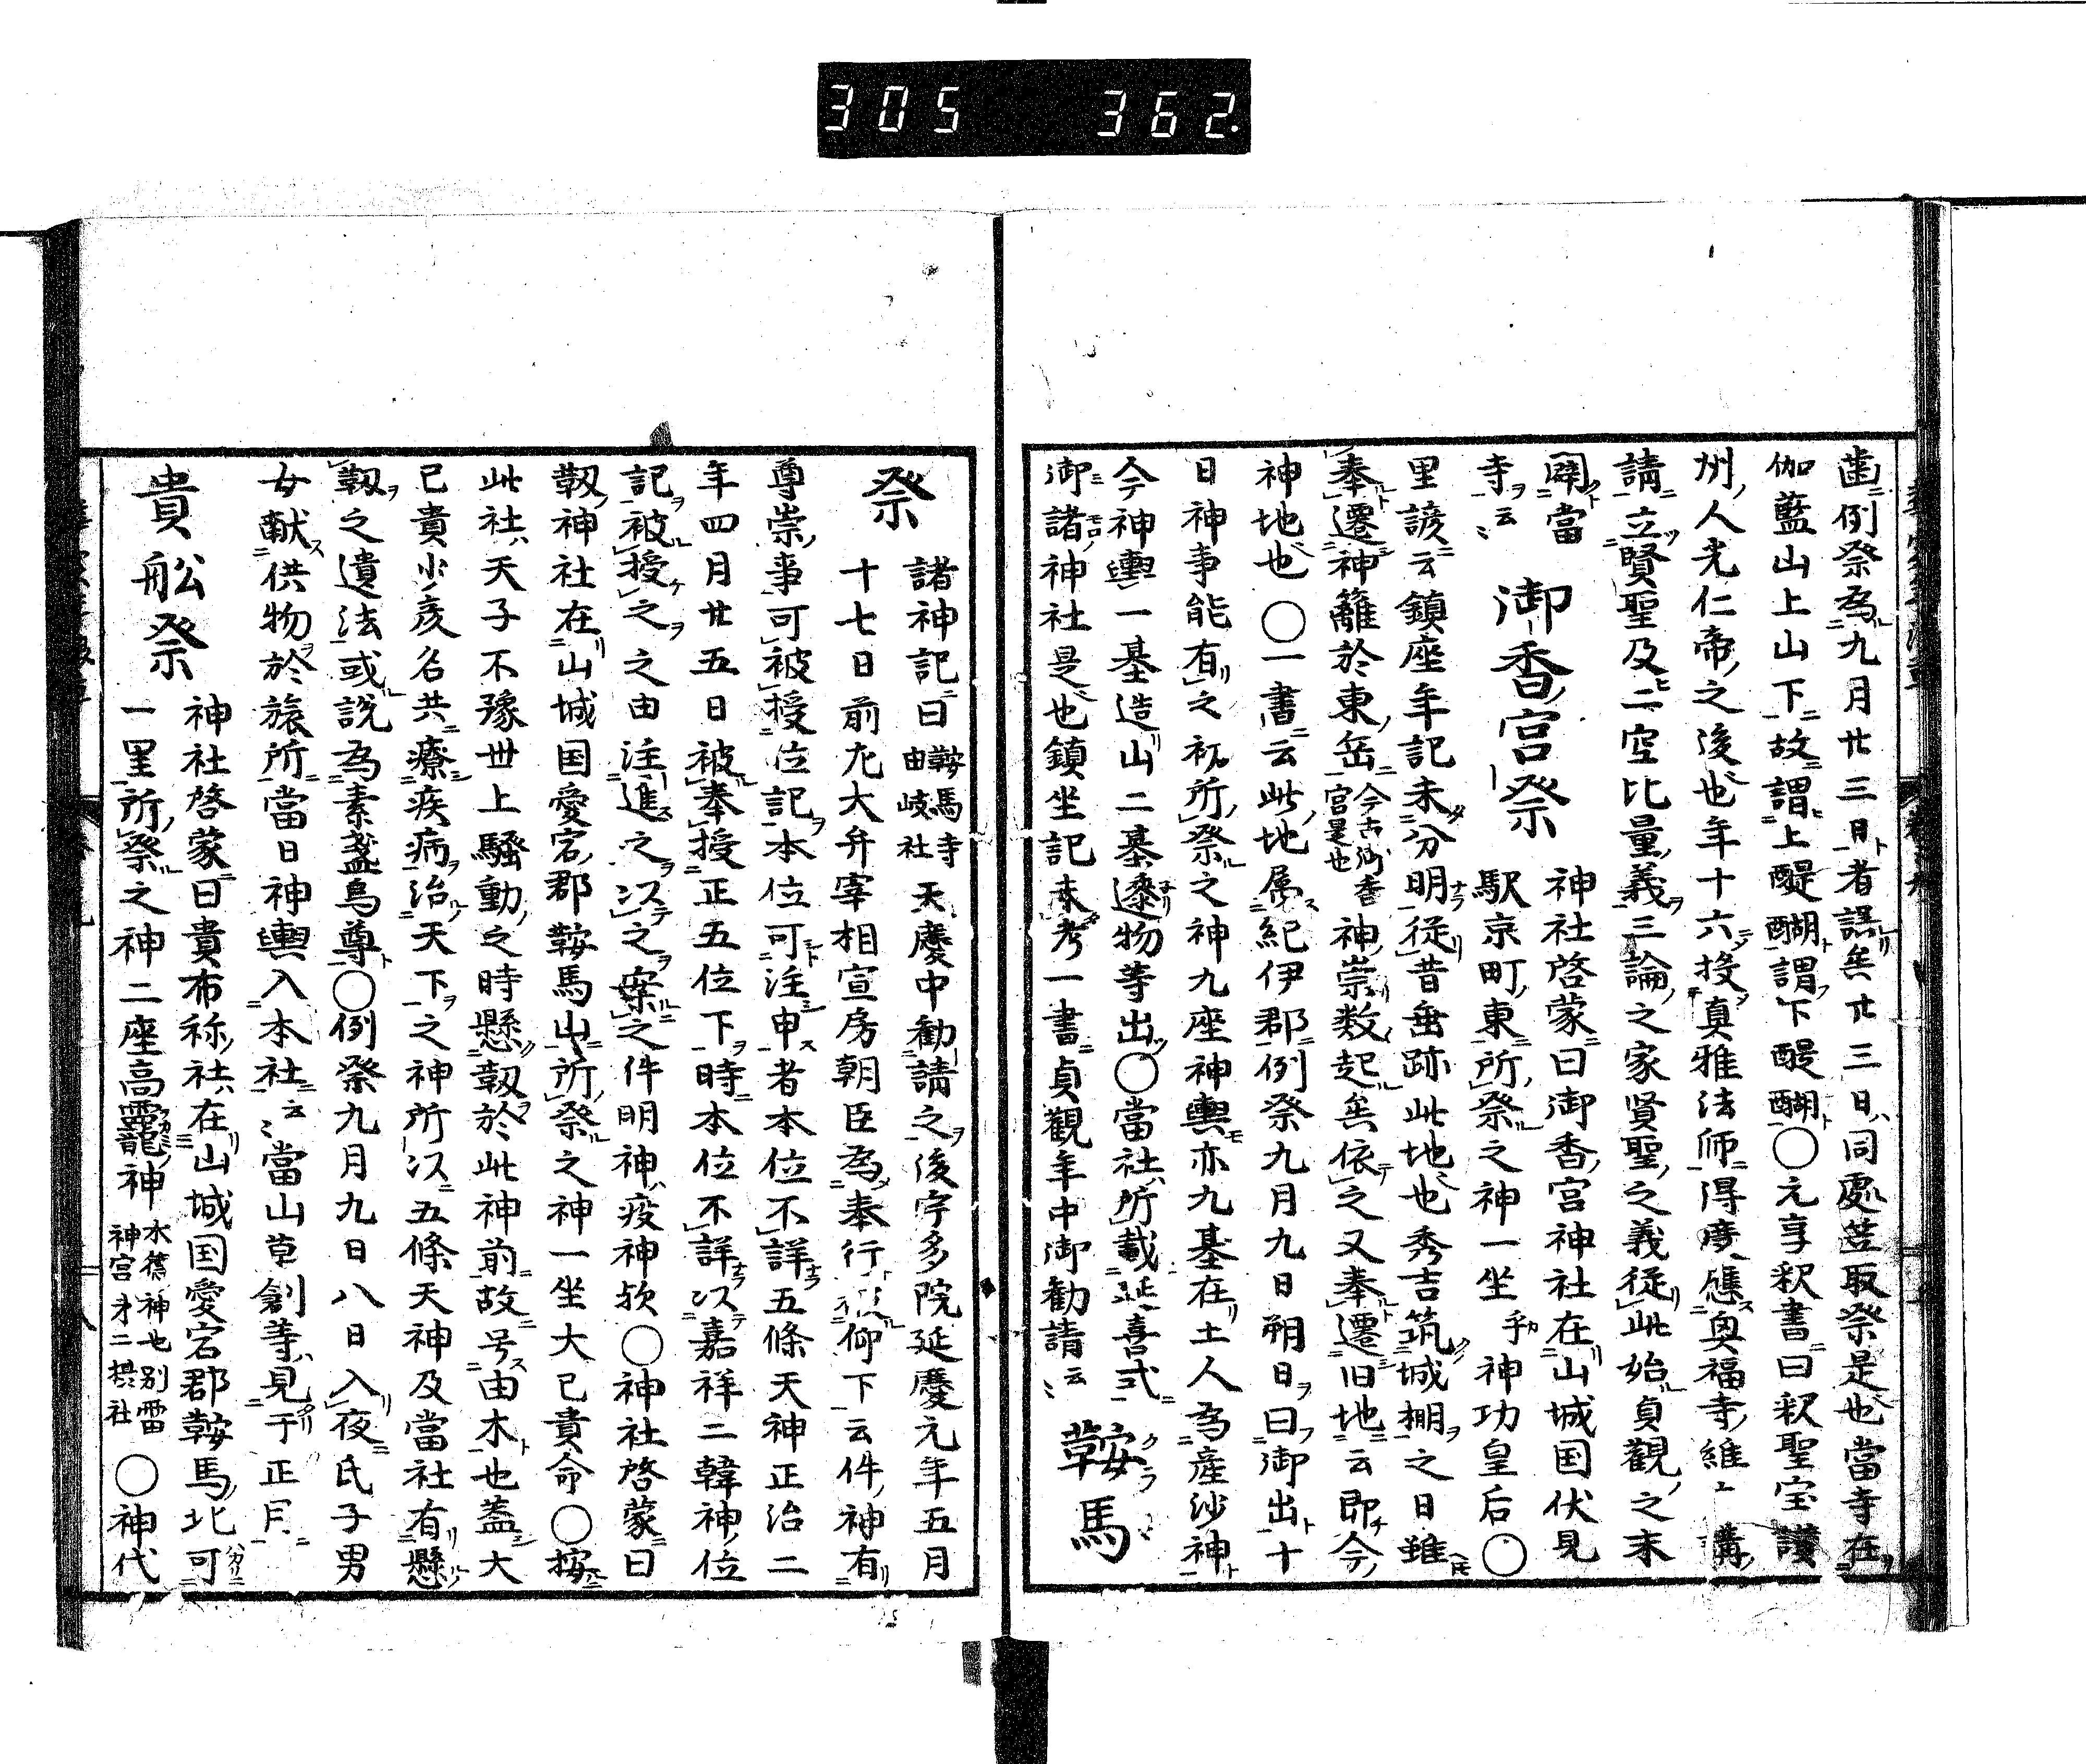 305 362
歯例祭為九月廿三日者誤矣廿三日同處笠取祭是也當寺在
伽藍山上山下故謂上醍醐謂下醍醐〇元亨釈書曰釈聖宝讃
州人光仁帝之後也年十六投真雅法师得度應奥福寺維〻講
請立賢聖及二空比量義三論之家賢聖之義従此始貞観之末
闢當
寺云〻
御香宮祭
神社啓蒙曰御香宮神社在山城国伏見
駅京町東所祭之神一坐神功皇后〇
里諺云鎮座年記未分明従昔垂跡此地也秀吉筑城棚之日雖
奉遷神籬於東岳今古御香宮是也神崇数起矣依之又奉遷旧地云即今
神地也〇一書云此地属紀伊郡例祭九月九日朔日曰御出十
日神事能有之初所祭之神九座神輿亦九基在土人為産沙神
今神輿一基造山二基邌物等出〇當社所載延喜式
御諸神社是也鎮坐記末考一書貞觀年中御勧請云〻
鞍馬
祭
諸神記曰鞍馬寺由岐社天慶中勧請之後宇多院延慶元年五月
十七日前左大弁宰相宣房朝臣為奉行被仰下云件神有
尊崇事可被授位記本位可注申者本位不詳五條天神正治二
年四月廿五日被奉授正五位下時本位不詳以嘉祥二韓神位
記被授之之由注進之以之案之件明神疫神欤〇神社啓蒙曰
靱神社在山城国愛宕郡鞍馬山所祭之神一坐大己貴命〇按
此社天子不豫世上騷動之時懸靱於此神前故号由木也蓋大
己貴少彦名共療疾病治天下之神所以五條天神及當社有懸
靱之遺法或説為素盞烏尊〇例祭九月九日八日入夜氏子男
女献供物於旅所當日神輿入本社云〻當山草創等見于正月
貴船祭
神社啓蒙曰貴布祢社在山城国愛宕郡鞍馬北可
一里所祭之神二座高龗神水德神也別雷神宮才二摂社〇神代